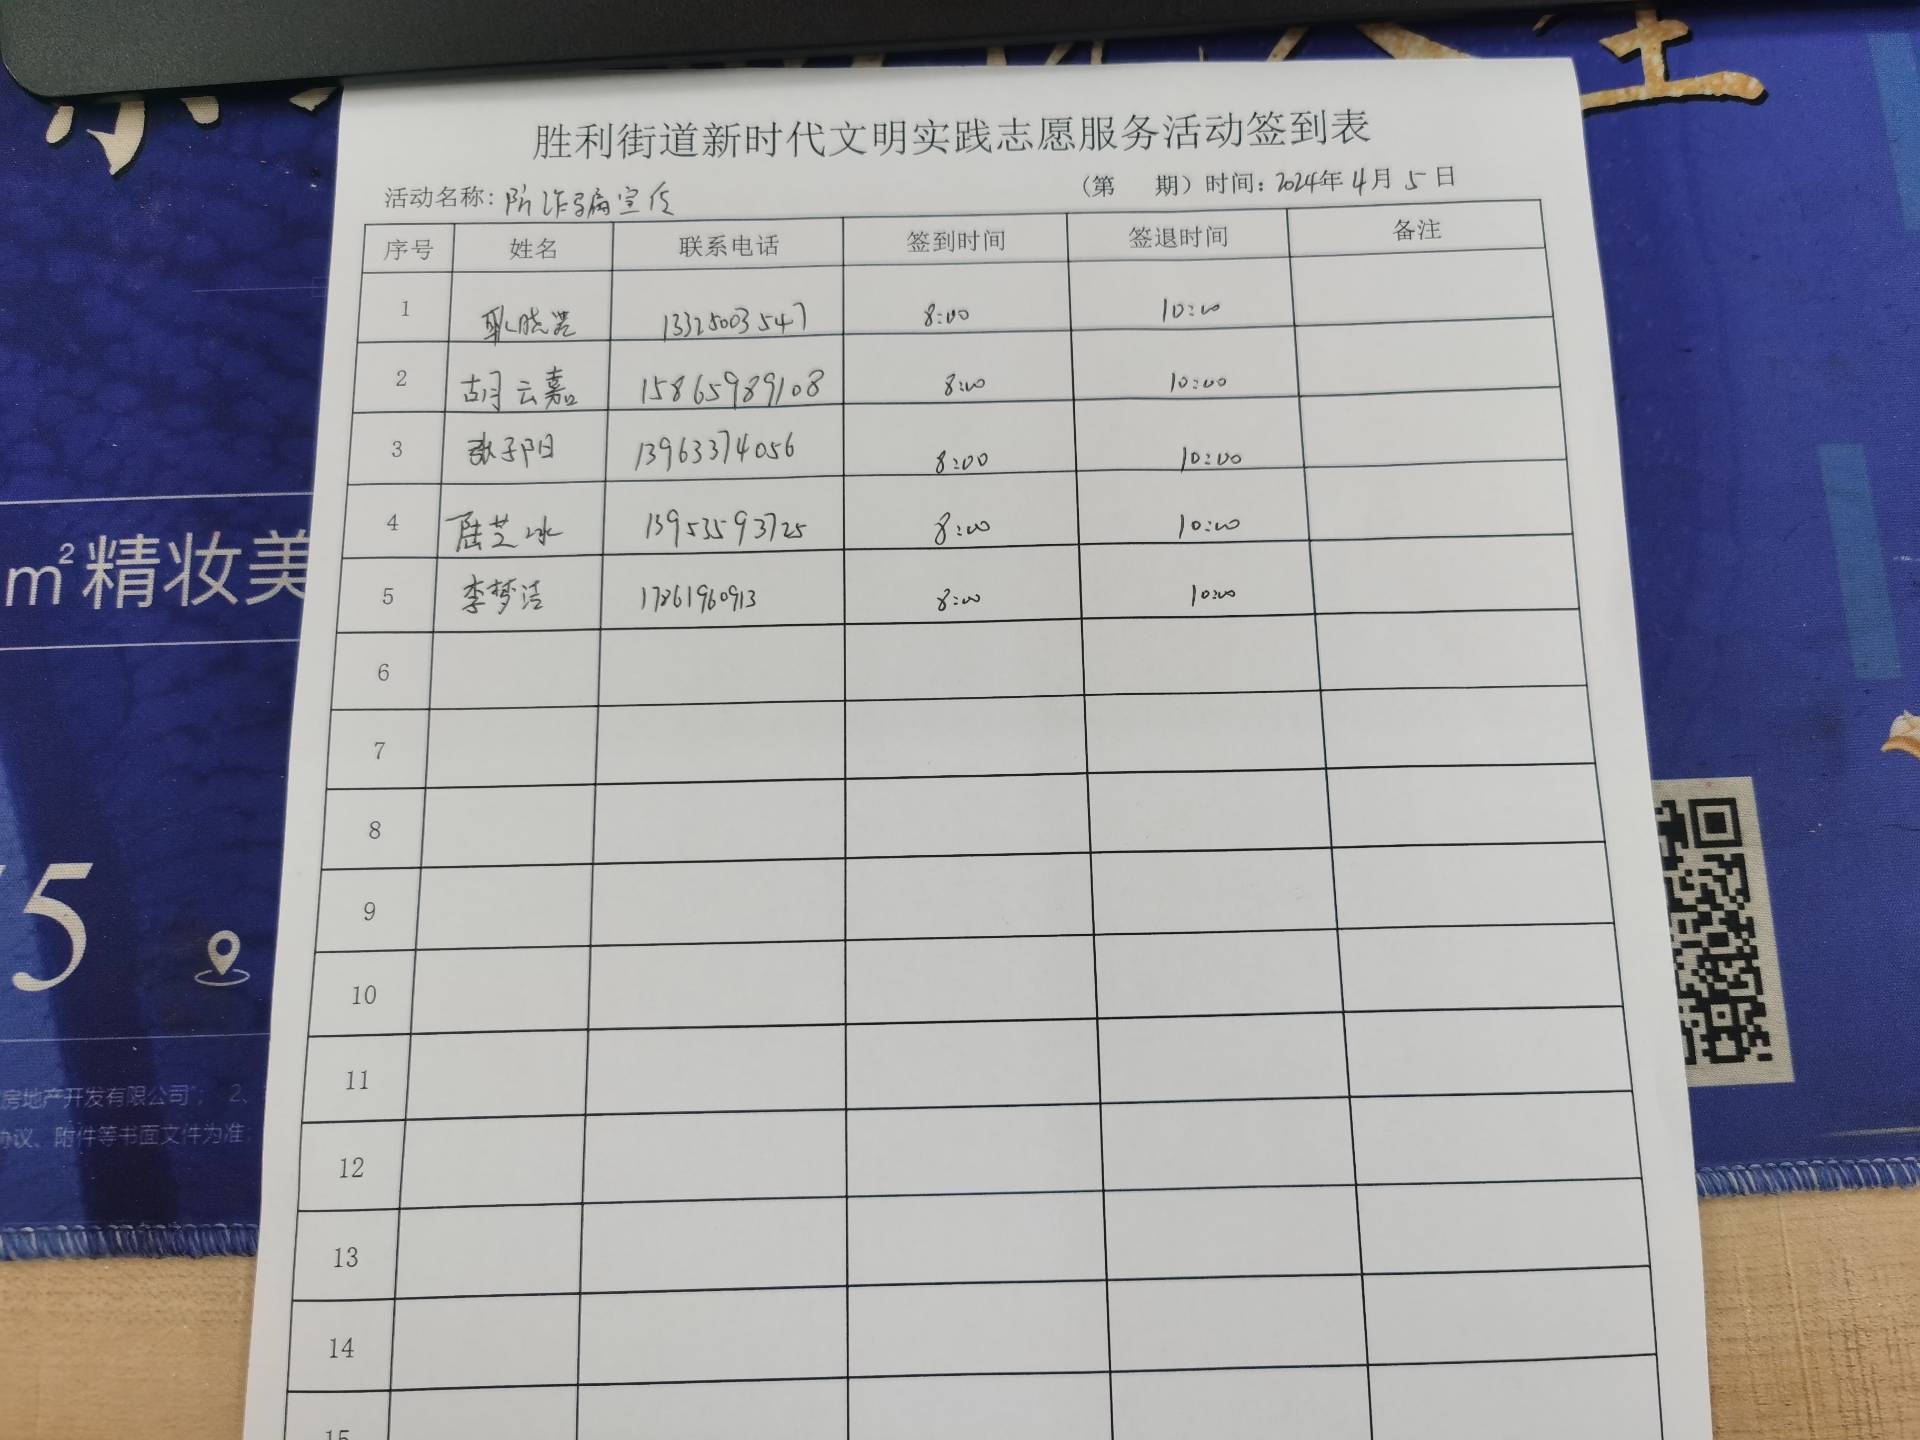 胜利街道新时代文明实践志愿服务活动签到表
活动名称：防诈骗宣传 （第 期）时间：2024年4月5日
序号 姓名 联系电话 签到时间 签退时间 备注
1 耿晓 13325003547 8:00 10:00
2 胡云嘉 15865989108 8:00 10:00
3 张子阳 13963374056 8:00 10:00
4 陆芝冰 13953593725 8:00 10:00
5 李梦洁 17861960913 8:00 10:00
6
7
8
9
10
11
12
13
14
15
m²精妆美
5
房地产开发有限公司"； 2、
协议、附件等书面文件为准